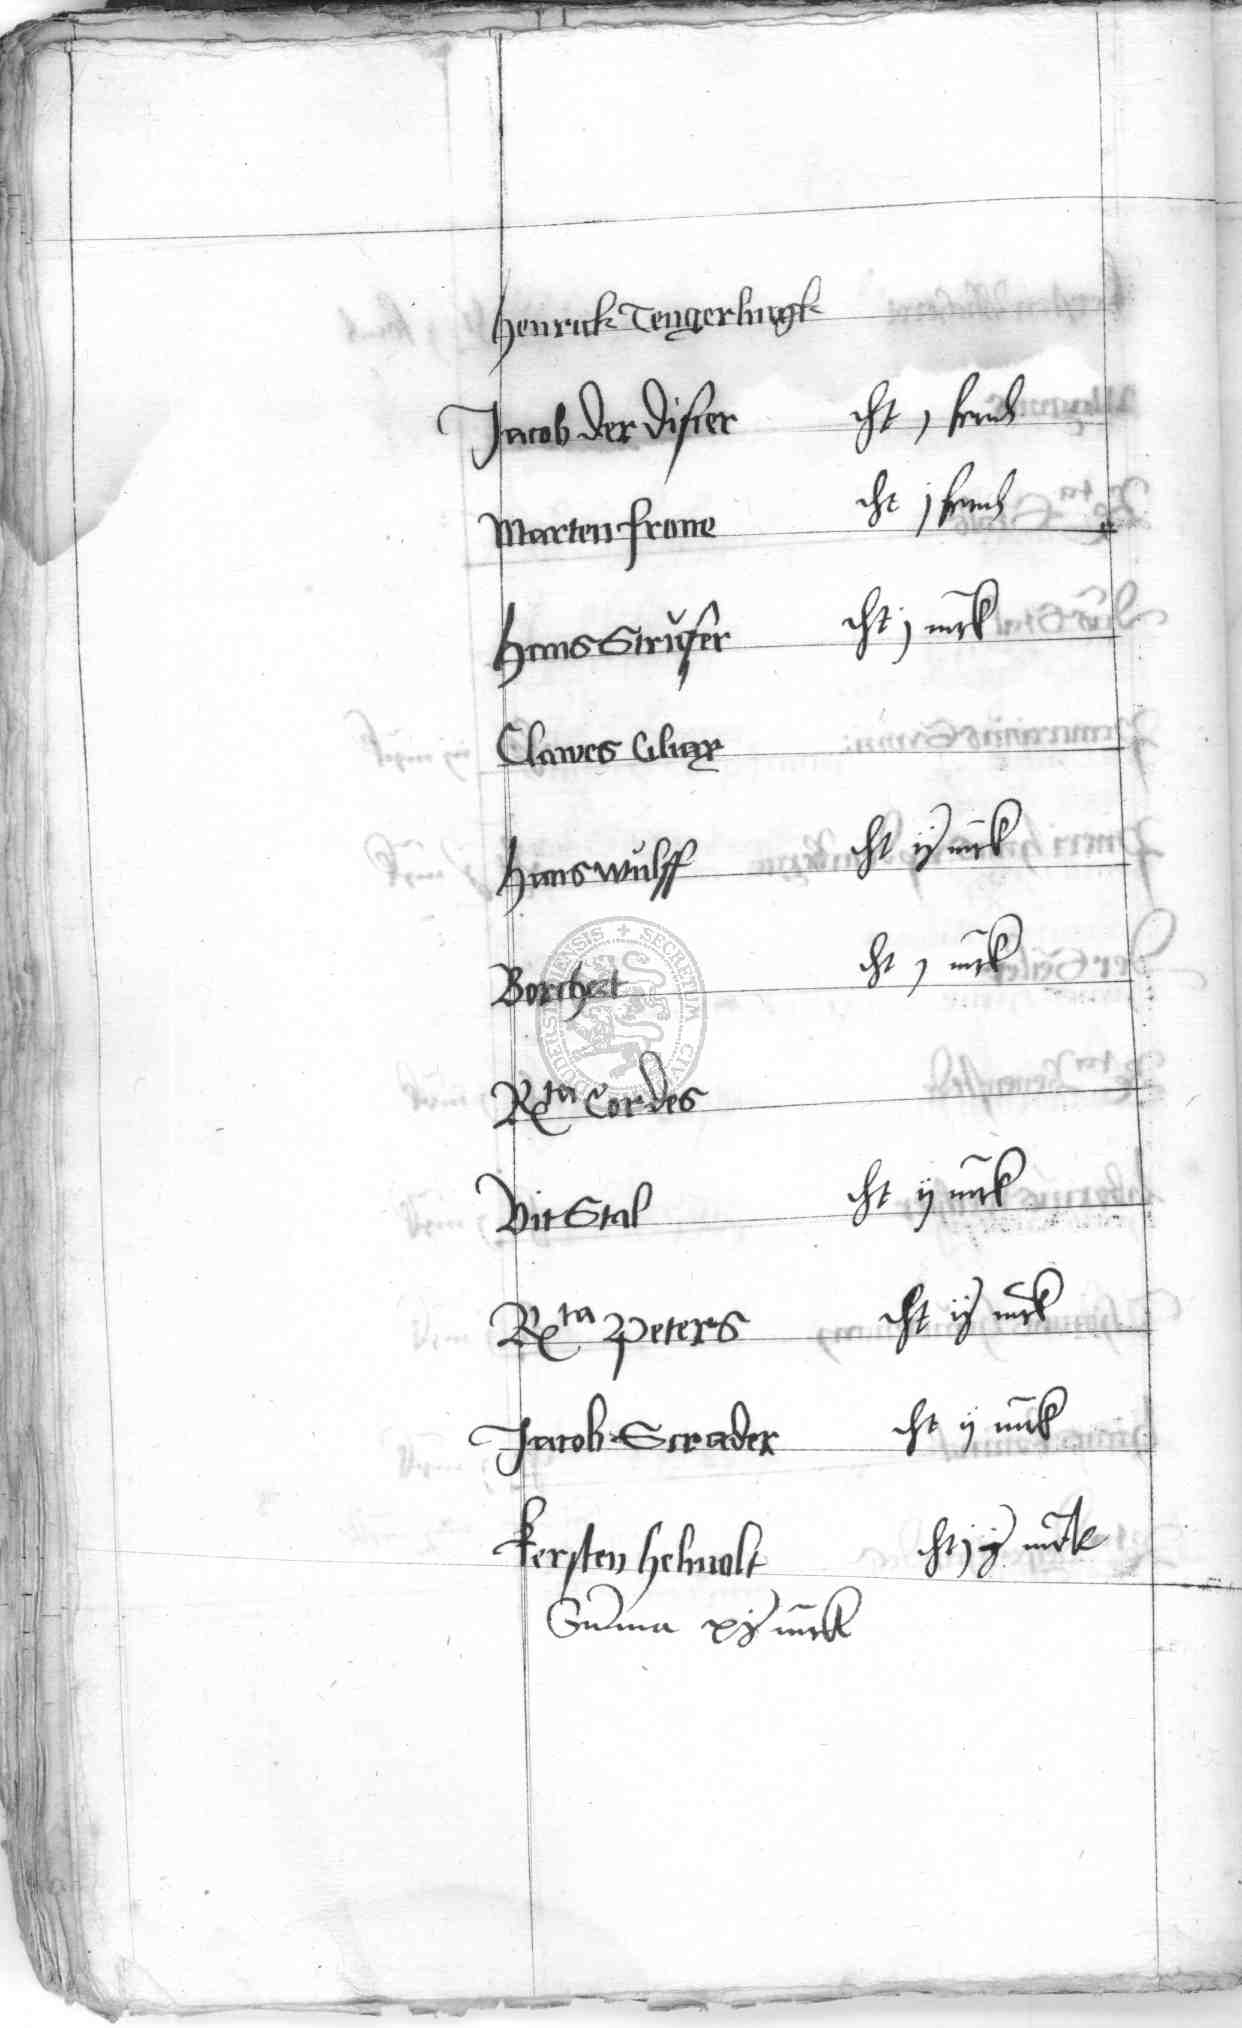 Henrick Tengerhugk
Jacob der Discer cht j ferd
Marten frone cht j ferd
Hans Strůser cht j mrk
Clawes
Hans wulff cht ij mrk
Borchert cht j mrk
Rta Cordes
Vit Stal cht ij mrk
Rta Peters cht ij mrk
Jacob Scrader cht ij mrk
kersten helmolt cht mrk
Summa xij mrk
SECRETUM CIV DUDERSTADIENSIS